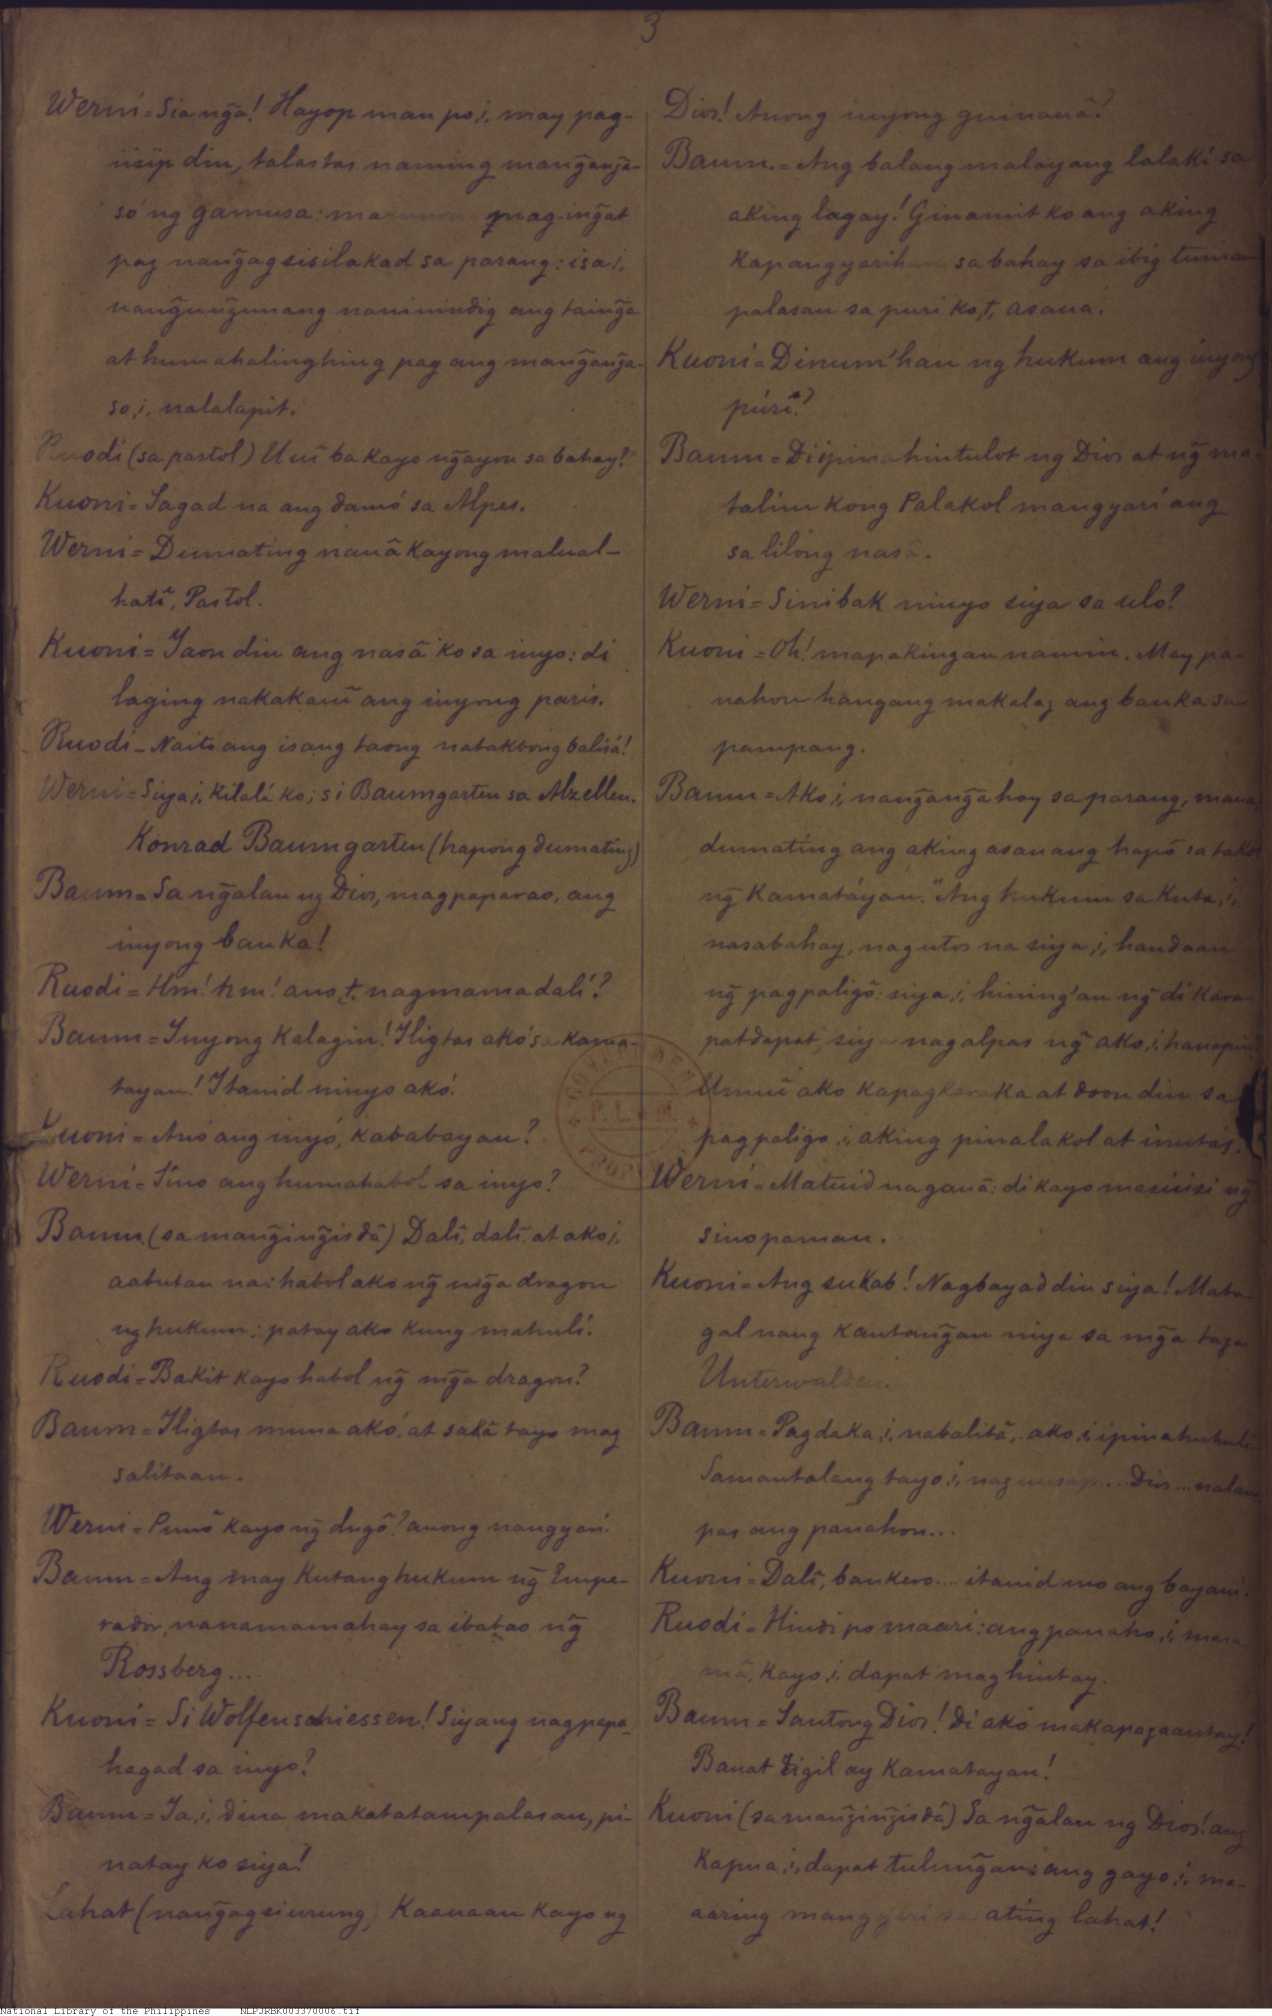 3
Werni = Sia ng̃a! Hayop man po,i, may pag-
iisip din, talastas naming mang̃ang̃a-
só ng gamusa: mag-ing̃at
pag nang̃agsisilakad sa parang: isa,i,
nang̃ung̃unang naninindig ang taing̃a
at humahalinghing pag ang mang̃ang̃a-
so,i, nalalapit.
Ruodi (sa pastol) Uuī ba kayo ng̃ayon sa bahay?
Kuoni = Sagad na ang damó sa Alpes.
Werni = Dumating nauā kayong malual-
hatī, Pastol.
Kuoni = Iaon din ang nasā ko sa inyo: di
laging nakakauī ang inyong paris.
Ruodi = Naito ang isang taong natakbong balisá!
Werni = Siya,i, kilalá ko; si Baumgarten sa Alzellen.
Konrad Baumgarten (hapong dumating)
Baum = Sa ng̃alan ng Dios, magpaparao, ang
inyong banka!
Ruodi = Hm! hm! ano,t, nagmamadalí?
Baum = Inyong kalagin! Iligtas akó sa kama-
tayan! Itauid ninyo akó.
Kuoni = Anó ang inyó, kababayan?
Werni = Sino ang humahabol sa inyo?
Baum (sa mang̃ing̃isdā) Dalī, dalī, at ako,i,
aabutan na: habol ako ng̃ mg̃a dragon
ng hukum; patay ako kung mahulí.
Ruodi = Bakit kayo habol ng̃ mg̃a dragon?
Baum = Iligtas muna akó, at sakā tayo mag
salitaan.
Werni = Punō kayo ng̃ dugō? anong nangyari.
Baum = Ang may Kutang hukum ng̃ Empe-
rador, nanamamahay sa ibabao ng̃
Rossberg....
Kuoni = Si Wolfenschiessen! Siyang nagpapa-
hagad sa inyo?
Baum = Ia,i, dina makatatampalasan, pi-
natay ko siya!
Lahat (nang̃agsiurung) Kaauaan kayo ng
Dios! Anong inyong guinauā?
Baum. = Ang balang malayang lalaki sa
aking lagay! Ginamit ko ang aking
sa bahay sa ibig
palasan sa puri ko,t, asaua.
Kuoni = Dinum'han ng hukum ang inyong
púri?
Baum = Di ipinahintulot ng Dios at ng̃ ma-
talim kong Palakol mangyari ang
salilóng nasā.
Werni = Sinibak ninyo siya sa ulo?
Kuoni = Oh! mapakingan namin. May pa-
nahon hangang makalag ang banka sa
pampang.
Baum = Ako,i, nang̃ang̃ahoy sa parang,
dumating ang aking asauang hapō sa takot
ng̃ Kamatáyan. "Ang hukum sa Kuta,i,
nasabahay, nagutos na siya,i, handaan
ng̃ pagpaligō: siya,i, hining'an ng̃ di kara-
patdapat, siya nagalpas ng̃ ako,i, hanapin
Umuī ako kapagkaraka at doon din sa
pagpaligo,i, aking pinalakol at inutás.
Werni = Matuid na gauā: di kayo masisisi ng̃
sinopaman.
Kuoni = Ang sukab! Nagbayad din siya! Mata-
gal nang kautang̃an niya sa mg̃a taga
Unterwalden.
Baum = Pagdaka,i, nabalitā, ako,i, ipinahuhuli
Samantalang tayo,i, naguusap.... Dios... nalam
pas ang panahon...
Kuoni = Dalī, bankero.... itauid mo ang bayani.
Ruodi = Hindi po maari: ang panaho,i, masa
mā, kayo,i, dapat maghintay.
Baum = Santong Dios! Di ako makapagaantay!
Bauat tigil ay Kamatayan!
Kuoni (sa mang̃ing̃isdā) Sa ng̃alan ng Dios! ang
kapua,i, dapat tulung̃an: ang gayo,i, ma-
aaring mangyari sa ating lahat!
National Library of the Philippines NLPJRBK003370006.tif